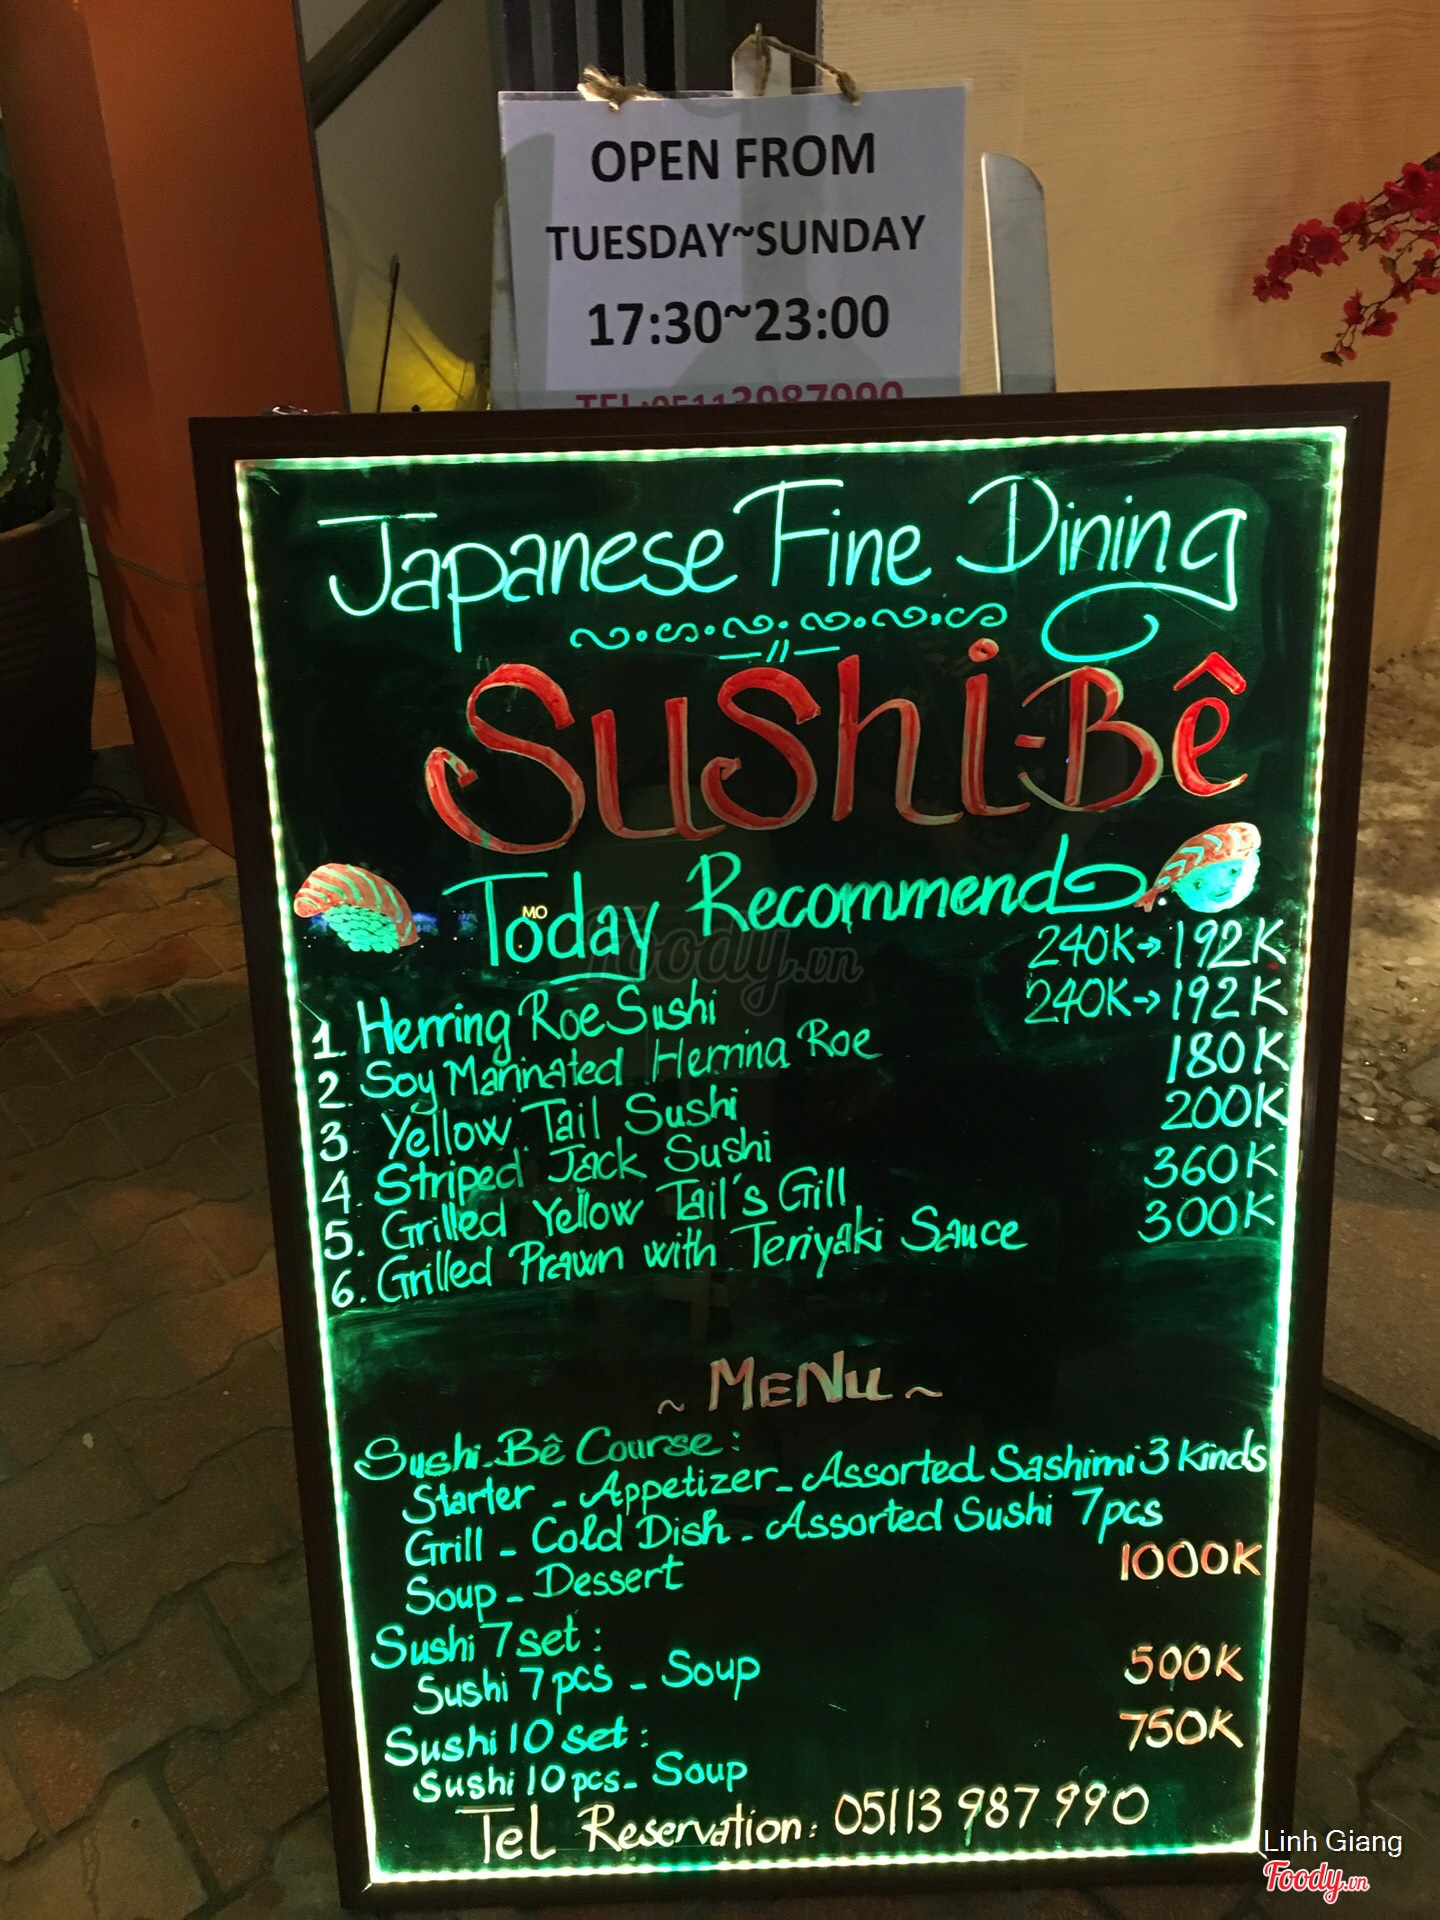 OPEN FROM
TUESDAY~SUNDAY
17:30~23:00
TEL:05113987990
Japanese Fine Dining
Sushi-Bê
Today Recommend
MO
Foody.vn
1. Herring Roe Sushi 240K→192K
2. Soy Marinated Herring Roe 240K→192K
3. Yellow Tail Sushi 180K
4. Striped Jack Sushi 200K
5. Grilled Yellow Tail's Gill 360K
6. Grilled Prawn with Teriyaki Sauce 300K
~ MENU ~
Sushi-Bê Course:
Starter - Appetizer - Assorted Sashimi 3 Kinds
Grill - Cold Dish - Assorted Sushi 7pcs
Soup - Dessert 1000K
Sushi 7 set:
Sushi 7pcs - Soup 500K
Sushi 10 set:
Sushi 10pcs - Soup 750K
Tel Reservation: 05113 987 990
Linh Giang
Foody.vn